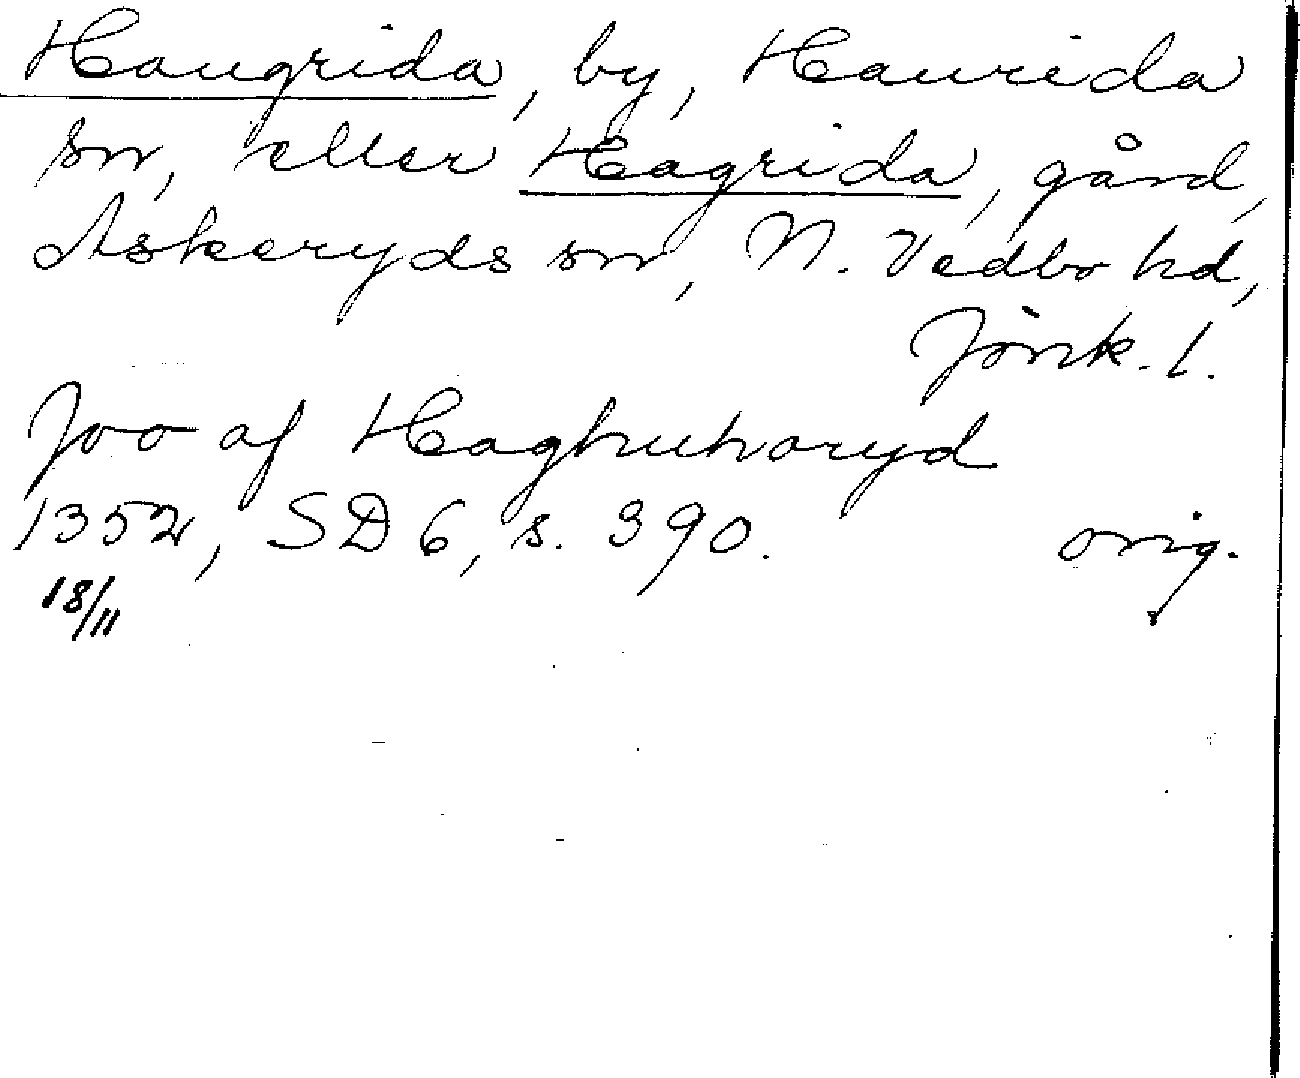 Haugrida, by, Haurida
sn, eller Hagrida, gård,
Askeryds sn, N. Vedbo hd,
Jönk. l.
Joo af Haghuharyd
1352, SD 6, s. 390. orig.
18/11